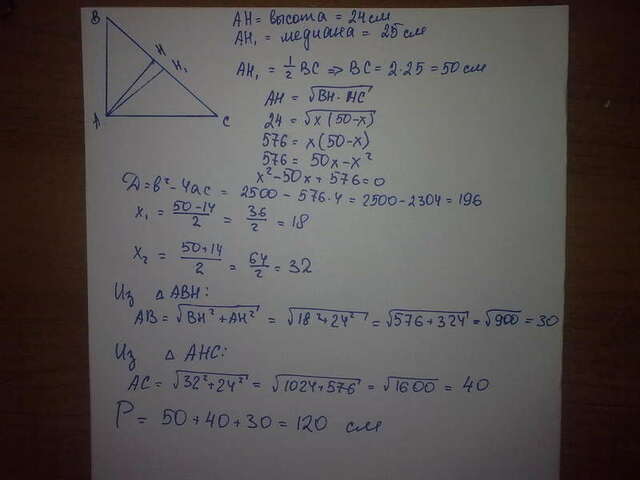 B
H
H₁
A
C
AH = высота = 24 см
AH₁ = медиана = 25 см
AH₁ = 1/2 BC ⇒ BC = 2·25 = 50 см
AH = √BH·HC
24 = √x(50-x)
576 = x(50-x)
576 = 50x-x²
x²-50x+576=0
D=b²-4ac = 2500-576·4 = 2500-2304 = 196
x₁ = 50-14/2 = 36/2 = 18
x₂ = 50+14/2 = 64/2 = 32
Из △ ABH:
AB = √BH²+AH² = √18²+24² = √576+324 = √900 = 30
Из △ AHC:
AC = √32²+24² = √1024+576 = √1600 = 40
P = 50+40+30 = 120 см